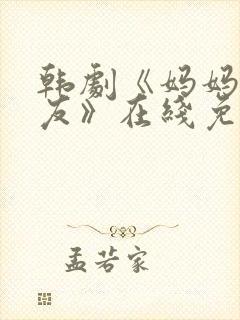 韩剧《妈妈
友》在线免
孟若家